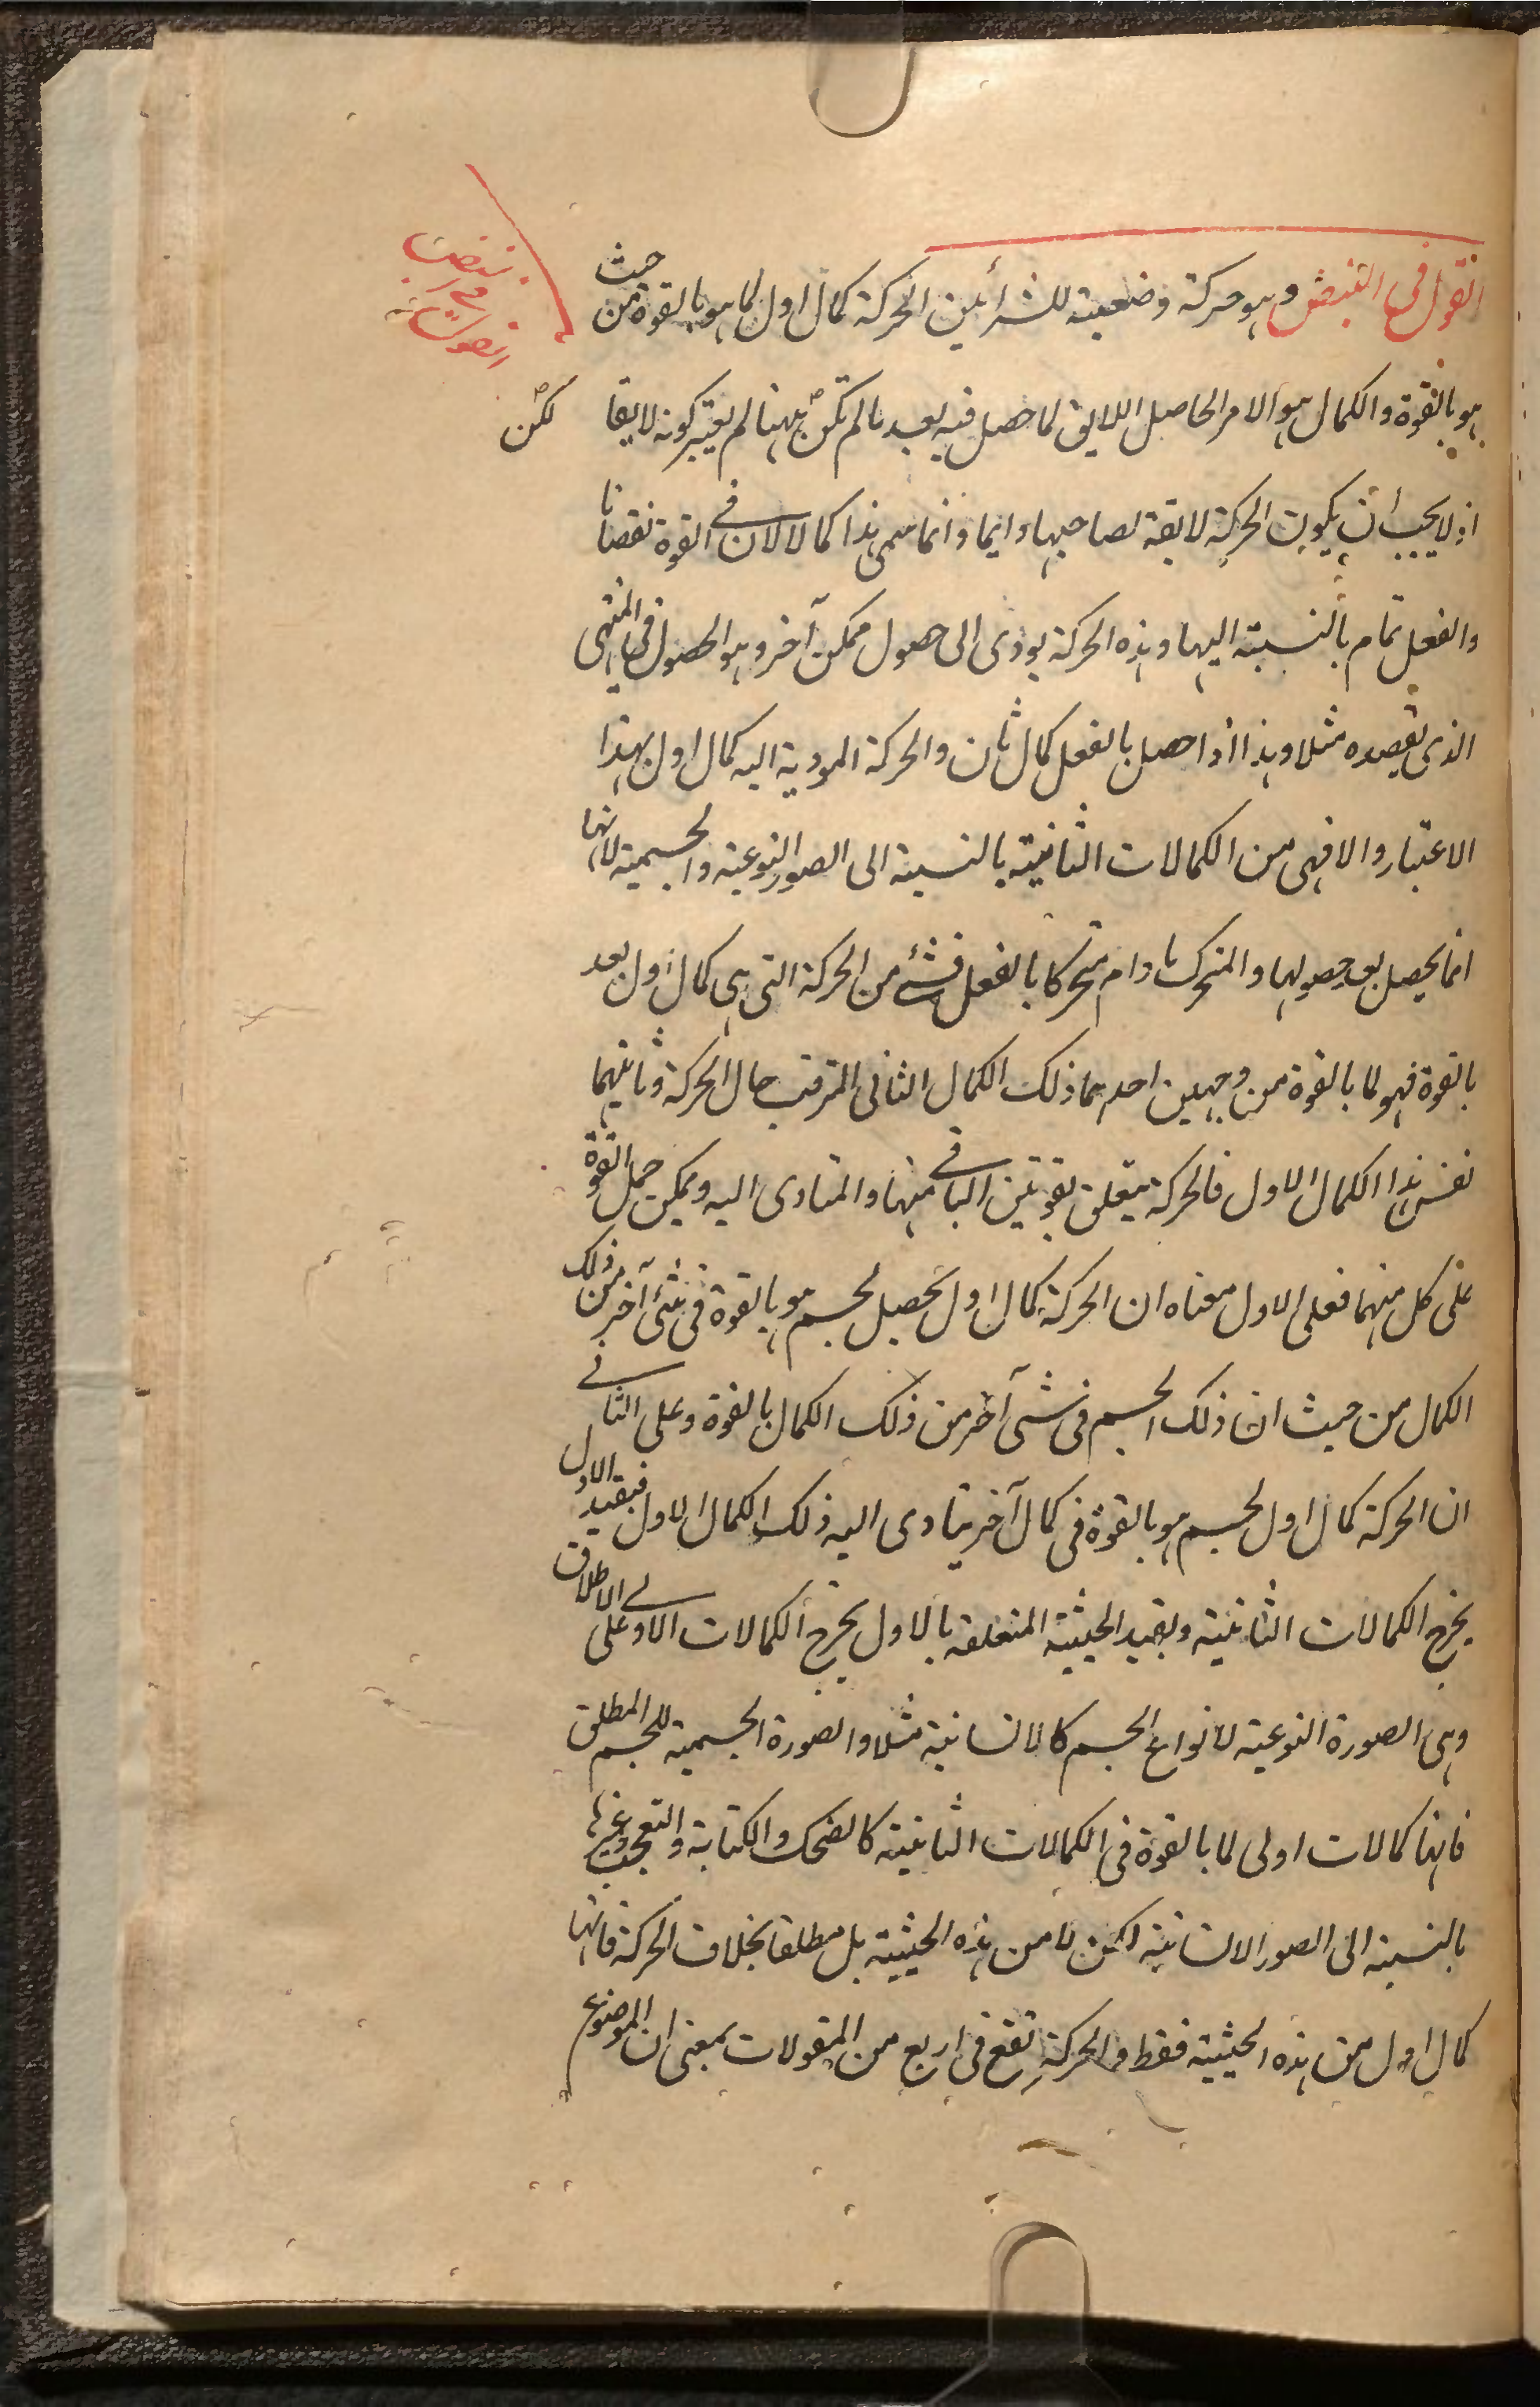 القول فى النبض وهو حركة وضعية للشرائين الحركة كمال اول لما هو بالقوة من حيث
هو بالقوة والكمال هو الامر الحاصل اللايق لما حصل فيه بعد ما لم تكن ههنا لم يعتبر كونه لايقا
لكن
اذ لا يجب ان يكون الحركة لايقة لصاحبها دايما وانما سمى هذا كمالا لان فى القوة نقصانا
والفعل تمام بالنسبة اليها وهذه الحركة يودى الى حصول ممكن آخر وهو الحصول فى المنتهى
الذى يقصده مثلا وهذا اذا حصل بالفعل كمال ثان والحركة المودية اليه كمال اول بهذا
الاعتبار والا فهى من الكمالات الثانية بالنسبة الى الصور النوعية والجسمية لانها
انما يحصل بعد حصولها والمتحرك ما دام متحركا بالفعل فشئ من الحركة التى هى كمال اول بعد
بالقوة فهو لما بالقوة من وجهين احدهما ذلك الكمال الثانى المترقب حال الحركة وثانيهما
نفس هذا الكمال الاول فالحركة يتعلق بقوتين الباقى منها والمتادى اليه ويمكن حمل القوة
على كل منهما فعلى الاول معناه ان الحركة كمال اول يحصل لجسم هو بالقوة فى شئ آخر من ذلك
الكمال من حيث ان ذلك الجسم فى شئ آخر من ذلك الكمال بالقوة وعلى الثانى
ان الحركة كمال اول لجسم هو بالقوة فى كمال آخر يتادى اليه ذلك الكمال الاول فبقيد الاول
يخرج الكمالات الثانية وبقيد الحيثية المتعلقة بالاول يخرج الكمالات الاولى على الاطلاق
وهى الصورة النوعية لانواع الجسم كالانسانية مثلا والصورة الجسمية للجسم المطلق
فانها كمالات اولى لما بالقوة فى الكمالات الثانية كالضحك والكتابة والتعجب وغيرها
بالنسبة الى الصور الانسانية لكن لا من هذه الحيثية بل مطلقا بخلاف الحركة فانها
كمال اول من هذه الحيثية فقط والحركة تقع فى اربع من المقولات بمعنى ان الموضوع